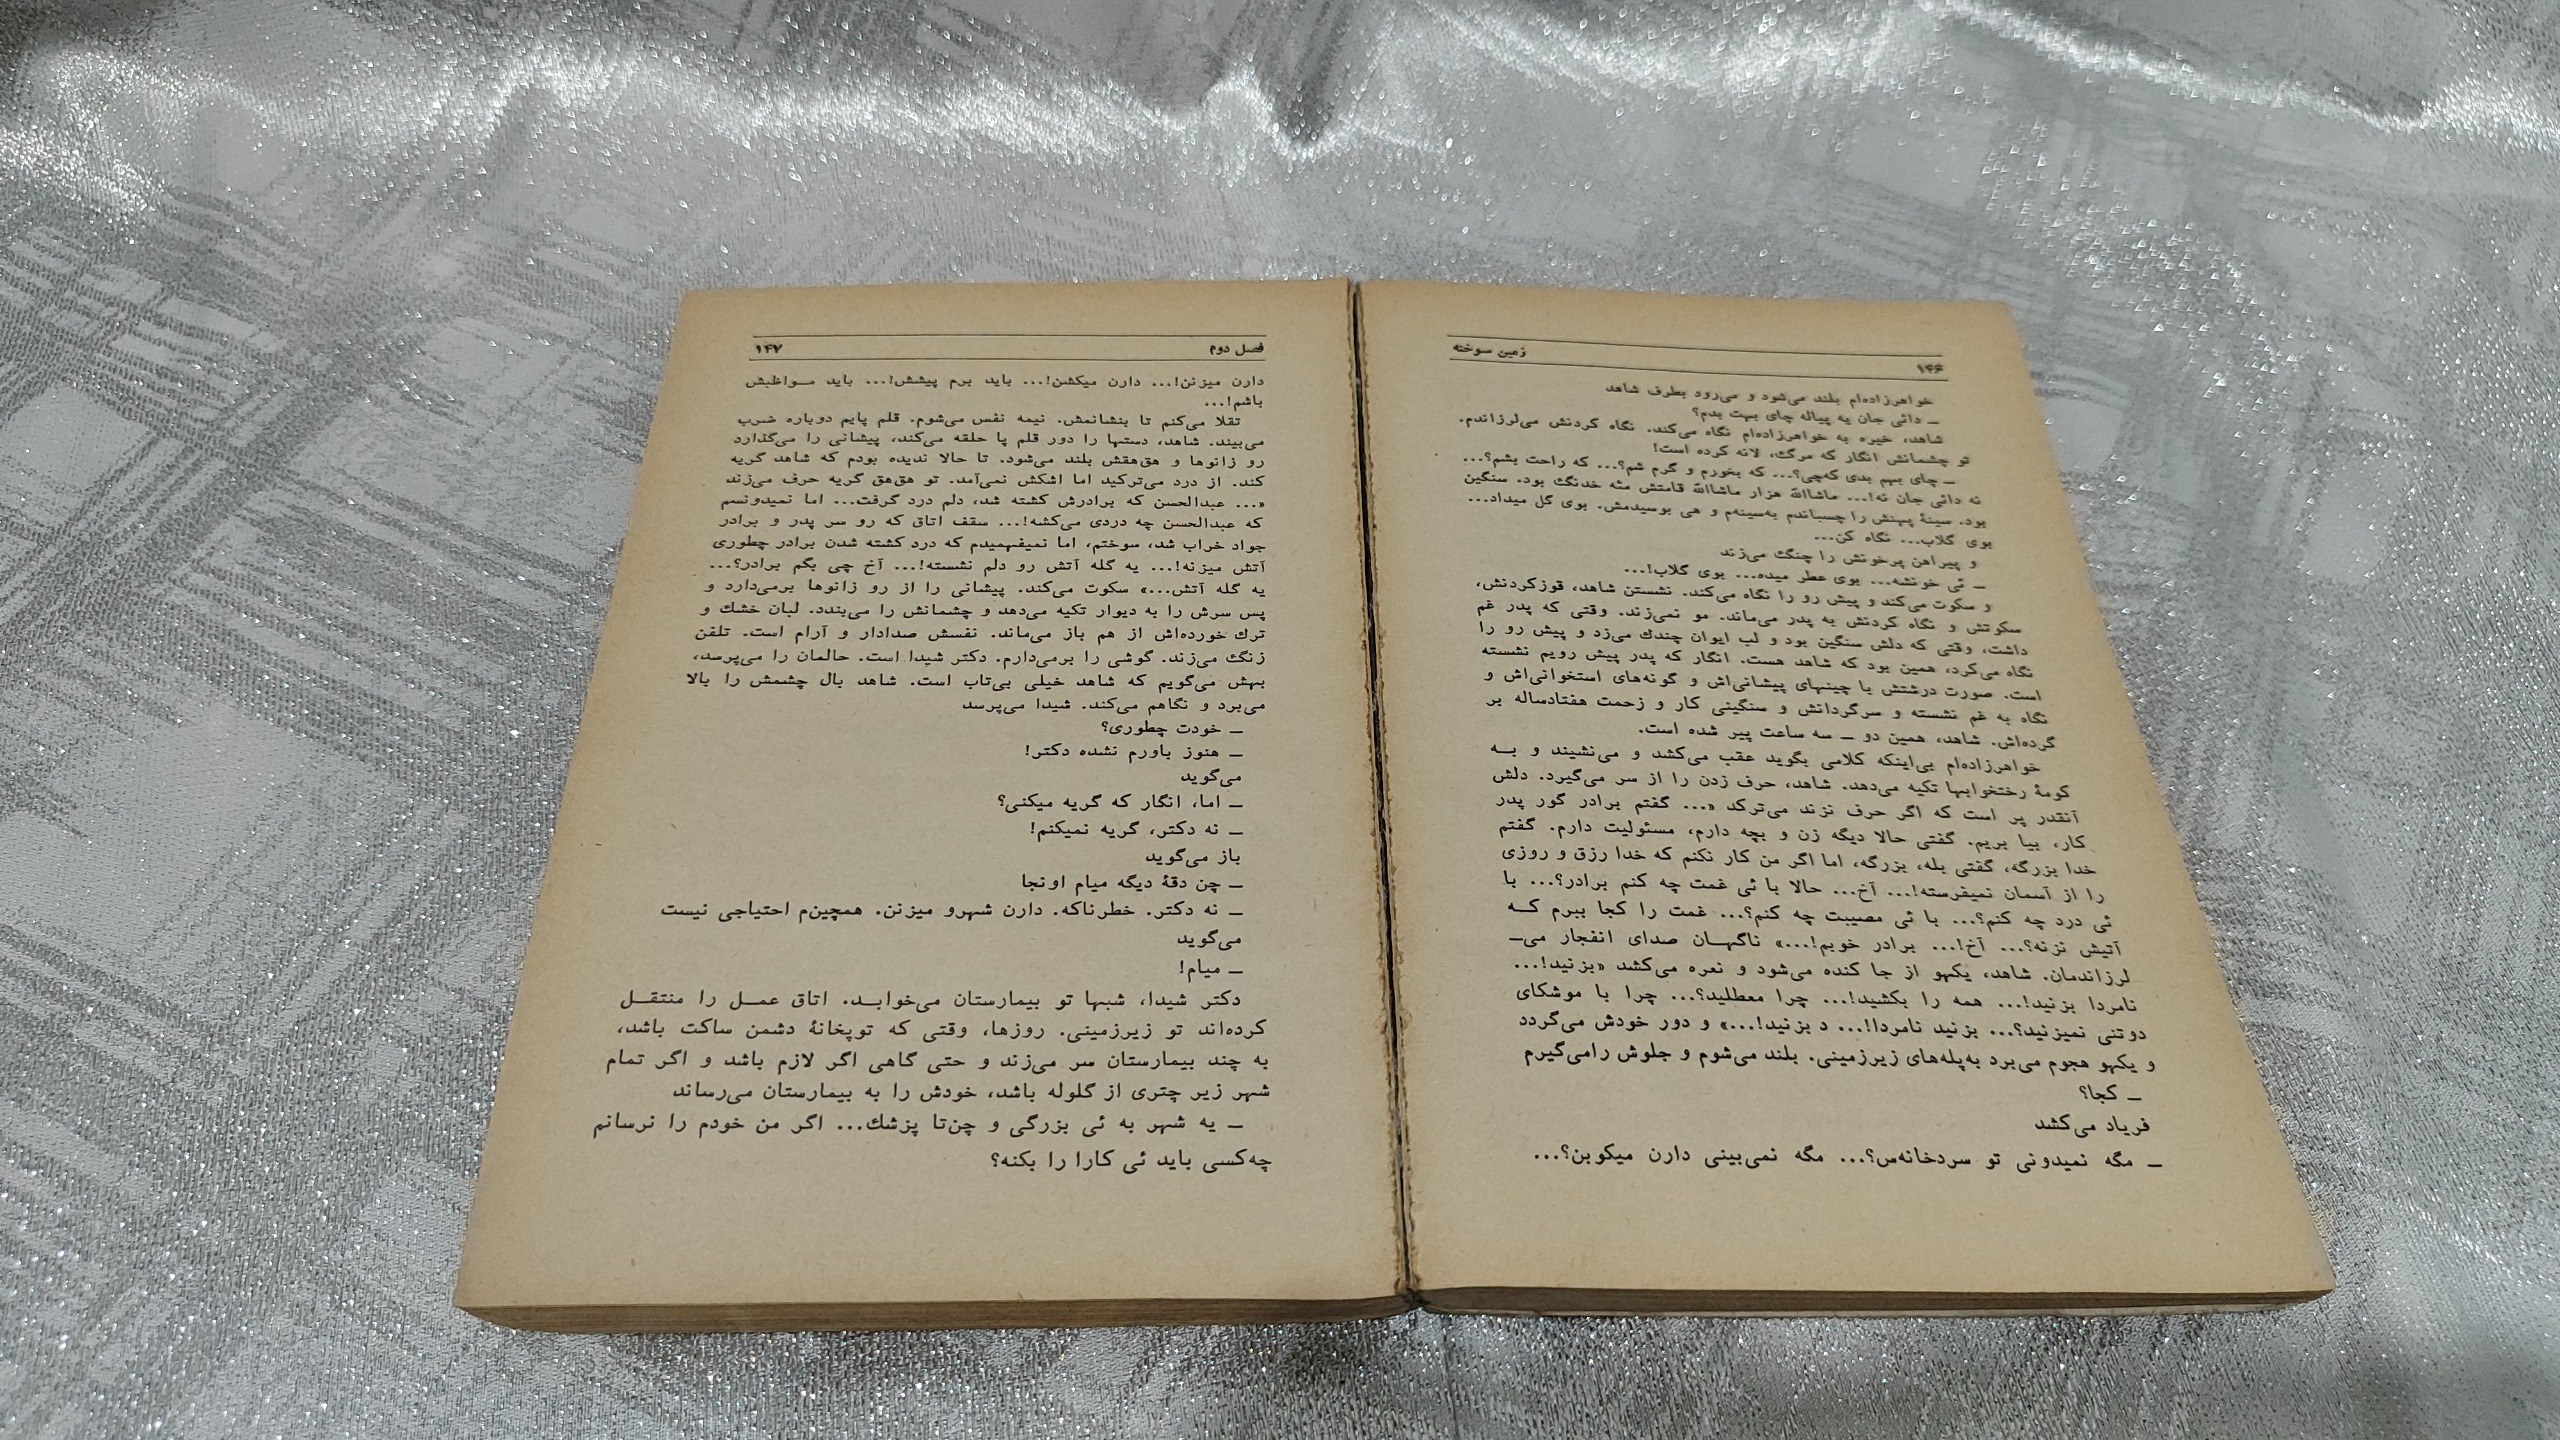 ۱۴۶ زمین سوخته
خواهرزاده‌ام بلند می‌شود و می‌رود بطرف شاهد
ــ دائی جان یه پیاله چای بهت بدم؟
شاهد، خیره به خواهرزاده‌ام نگاه می‌کند. نگاه کردنش می‌لرزاندم.
تو چشمانش انگار که مرگ، لانه کرده است!
ــ چای بهم بدی که‌چی؟... که بخورم و گرم شم؟... که راحت بشم؟...
نه دائی جان نه!... ماشاالله هزار ماشاالله قامتش مثه خدنگ بود. سنگین
بود. سینهٔ پهنش را چسباندم به‌سینه‌م و هی بوسیدمش. بوی گل میداد...
بوی گلاب... نگاه کن...
و پیراهن پرخونش را چنگ می‌زند
ــ ئی خونشه... بوی عطر میده... بوی گلاب!...
و سکوت می‌کند و پیش رو را نگاه می‌کند. نشستن شاهد، قوزکردنش،
سکوتش و نگاه کردنش به پدر می‌ماند. مو نمی‌زند. وقتی که پدر غم
داشت، وقتی که دلش سنگین بود و لب ایوان چندك می‌زد و پیش رو را
نگاه می‌کرد، همین بود که شاهد هست. انگار که پدر پیش رویم نشسته
است. صورت درشتش با چینهای پیشانی‌اش و گونه‌های استخوانی‌اش و
نگاه به غم نشسته و سرگردانش و سنگینی کار و زحمت هفتادساله بر
گرده‌اش. شاهد، همین دو ــ سه ساعت پیر شده است.
خواهرزاده‌ام بی‌اینکه کلامی بگوید عقب می‌کشد و می‌نشیند و بــه
کومهٔ رختخوابها تکیه می‌دهد. شاهد، حرف زدن را از سر می‌گیرد. دلش
آنقدر پر است که اگر حرف نزند می‌ترکد «... گفتم برادر گور پدر
کار، بیا بریم. گفتی حالا دیگه زن و بچه دارم، مسئولیت دارم. گفتم
خدا بزرگه، گفتی بله، بزرگه، اما اگر من کار نکنم که خدا رزق و روزی
را از آسمان نمیفرسته!... آخ... حالا با ئی غمت چه کنم برادر؟... با
ئی درد چه کنم؟... با ئی مصیبت چه کنم؟... غمت را کجا ببرم کــه
آتیش نزنه؟... آخ!... برادر خوبم!...» ناگهــان صدای انفجار می‌ــ
لرزاندمان. شاهد، یکهو از جا کنده می‌شود و نعره می‌کشد «بزنید!...
نامردا بزنید!... همه را بکشید!... چرا معطلید؟... چرا با موشکای
دوتنی نمیزنید؟... بزنید نامردا!... د بزنید!...» و دور خودش می‌گردد
و یکهو هجوم می‌برد به‌پله‌های زیرزمینی. بلند می‌شوم و جلوش رامی‌گیرم
ــ کجا؟
فریاد می‌کشد
ــ مگه نمیدونی تو سردخانه‌س؟... مگه نمی‌بینی دارن میکوبن؟...
فصل دوم ۱۴۷
دارن میزنن!... دارن میکشن!... باید برم پیشش!... باید مــواظبش
باشم!...
تقلا می‌کنم تا بنشانمش. نیمه نفس می‌شوم. قلم پایم دوباره ضرب
می‌بیند. شاهد، دستها را دور قلم پا حلقه می‌کند، پیشانی را می‌گذارد
رو زانوها و هق‌هقش بلند می‌شود. تا حالا ندیده بودم که شاهد گریه
کند. از درد می‌ترکید اما اشکش نمی‌آمد. تو هق‌هق گریه حرف می‌زند
«... عبدالحسن که برادرش کشته شد، دلم درد گرفت... اما نمیدونسم
که عبدالحسن چه دردی می‌کشه!... سقف اتاق که رو سر پدر و برادر
جواد خراب شد، سوختم، اما نمیفهمیدم که درد کشته شدن برادر چطوری
آتش میزنه!... یه گله آتش رو دلم نشسته!... آخ چی بگم برادر؟...
یه گله آتش...» سکوت می‌کند. پیشانی را از رو زانوها برمی‌دارد و
پس سرش را به دیوار تکیه می‌دهد و چشمانش را می‌بندد. لبان خشك و
ترك خورده‌اش از هم باز می‌ماند. نفسش صدادار و آرام است. تلفن
زنگ می‌زند. گوشی را برمی‌دارم. دکتر شیدا است. حالمان را می‌پرسد،
بهش می‌گویم که شاهد خیلی بی‌تاب است. شاهد بال چشمش را بالا
می‌برد و نگاهم می‌کند. شیدا می‌پرسد
ــ خودت چطوری؟
ــ هنوز باورم نشده دکتر!
می‌گوید
ــ اما، انگار که گریه میکنی؟
ــ نه دکتر، گریه نمیکنم!
باز می‌گوید
ــ چن دقهٔ دیگه میام اونجا
ــ نه دکتر. خطرناکه. دارن شهرو میزنن. همچین‌م احتیاجی نیست
می‌گوید
ــ میام!
دکتر شیدا، شبها تو بیمارستان می‌خوابــد. اتاق عمــل را منتقــل
کرده‌اند تو زیرزمینی. روزها، وقتی که توپخانهٔ دشمن ساکت باشد،
به چند بیمارستان سر می‌زند و حتی گاهی اگر لازم باشد و اگر تمام
شهر زیر چتری از گلوله باشد، خودش را به بیمارستان می‌رساند
ــ یه شهر به ئی بزرگی و چن‌تا پزشك... اگر من خودم را نرسانم
چه‌کسی باید ئی کارا را بکنه؟